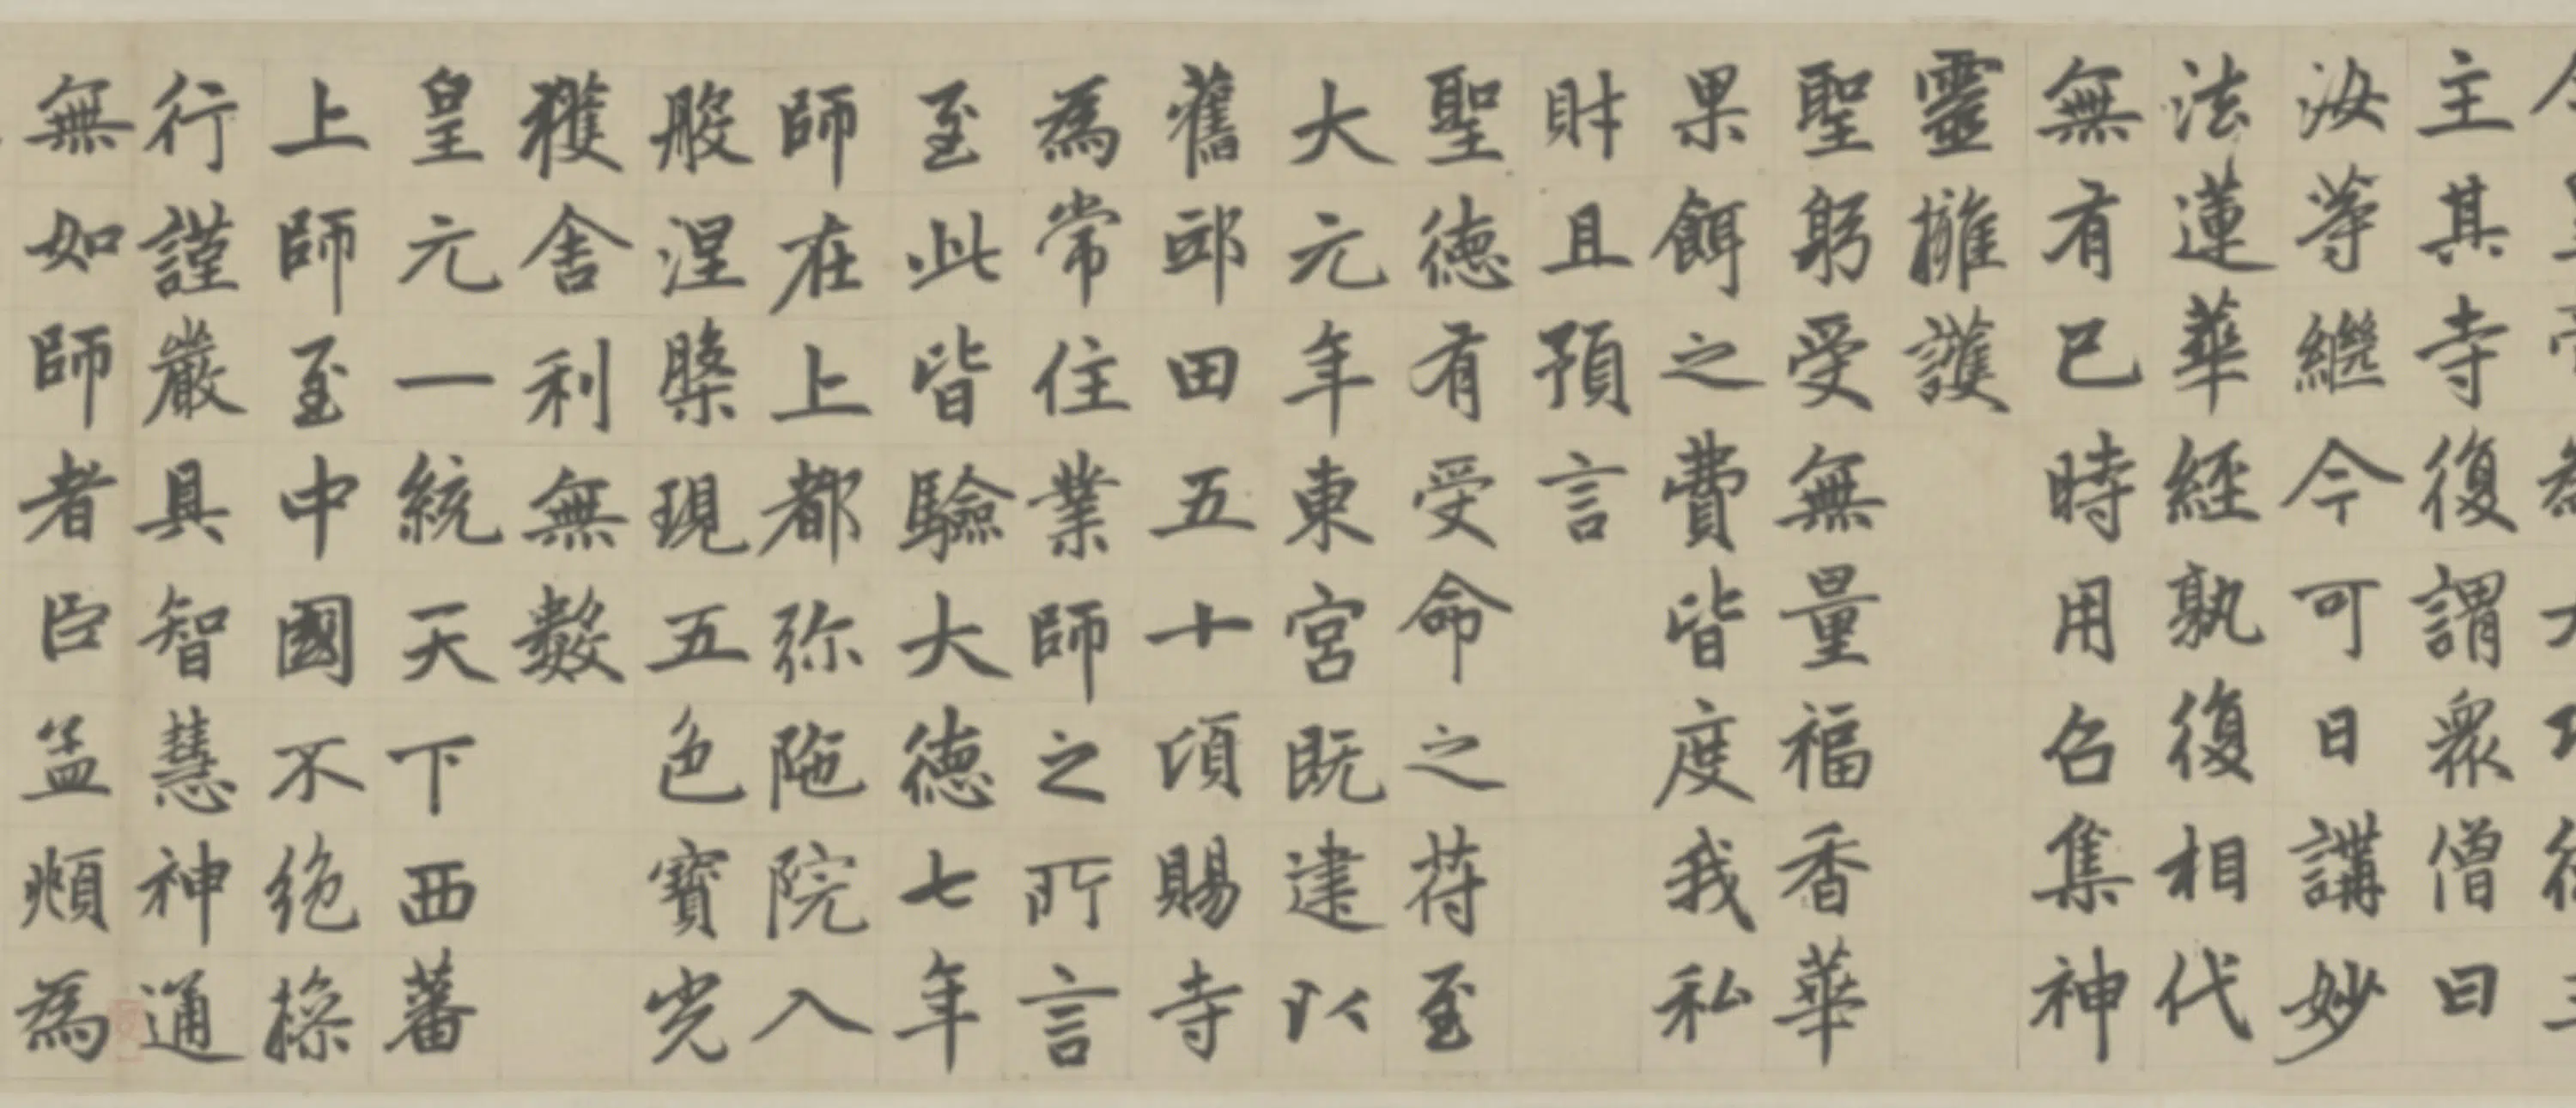 主其寺復謂衆僧曰
汝等繼今可日講妙
法蓮華經孰復相代
無有已時用召集神
靈擁護
聖躬受無量福香華
果餌之費皆度我私
財且預言
聖德有受命之符至
大元年東宮既建以
舊邸田五十頃賜寺
為常住業師之所言
至此皆驗大德七年
師在上都弥陁院入
般涅槃現五色寶光
穫舍利無數
皇元一統天下西蕃
上師至中國不絕操
行謹嚴具智慧神通
無如師者臣孟頫為